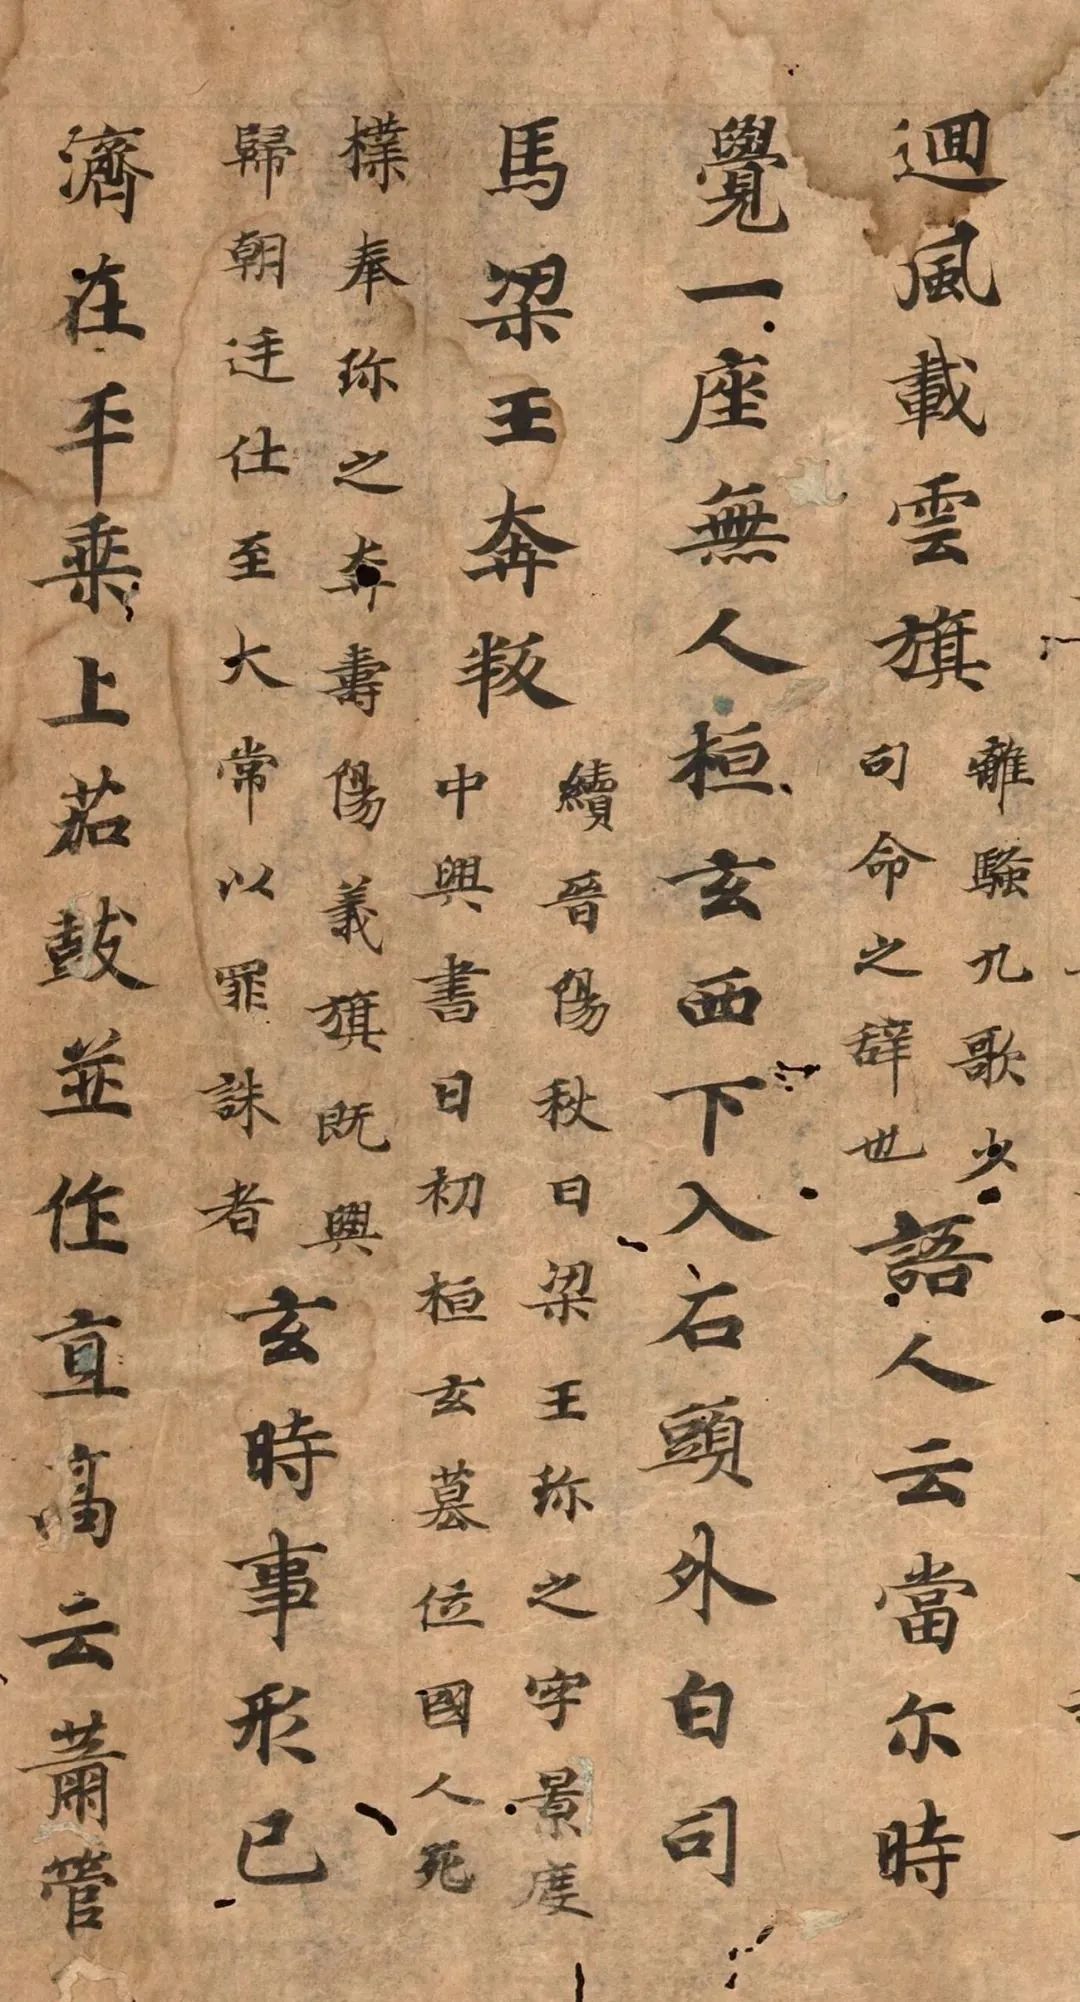 迴風載雲旗
離騷九歌少
司命之辞也
語人云當尓時
覺一座無人桓玄西下入石頭外白司
馬梁王奔叛
續晉陽秋曰梁王珎之字景度
中興書曰初桓玄墓位國人孔
樸奉珎之奔壽陽義旗既興
歸朝迋仕至大常以罪誅者
玄時事形已
濟在平乗上茄鼓並作直高云蕭管